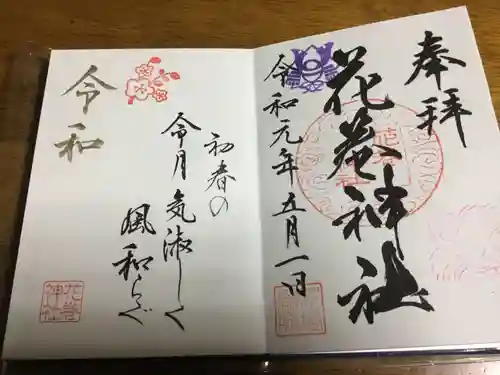 奉拝
花巻神社
令和元年五月一日
初春の
令月
気淑しく
風和らぐ
令和
花巻
神社